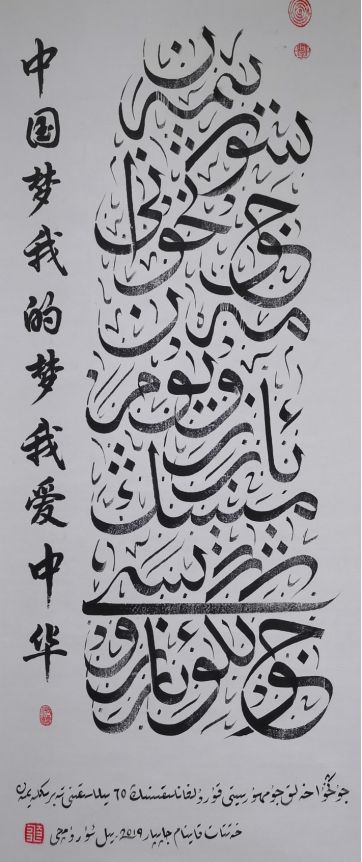 中国梦我的梦我爱中华
جۇڭگو ئارزۇسى
مېنىڭ ئارزۇيۇم
مەن جۇڭگونى سۆيىمەن
جۇڭخۇا خەلق جۇمھۇرىيىتى قۇرۇلغانلىقىنىڭ 70 يىللىقىنى تەبرىكلەيمەن
خەتتات قاينام جاپپار 2019.يىل ئۈرۈمچى